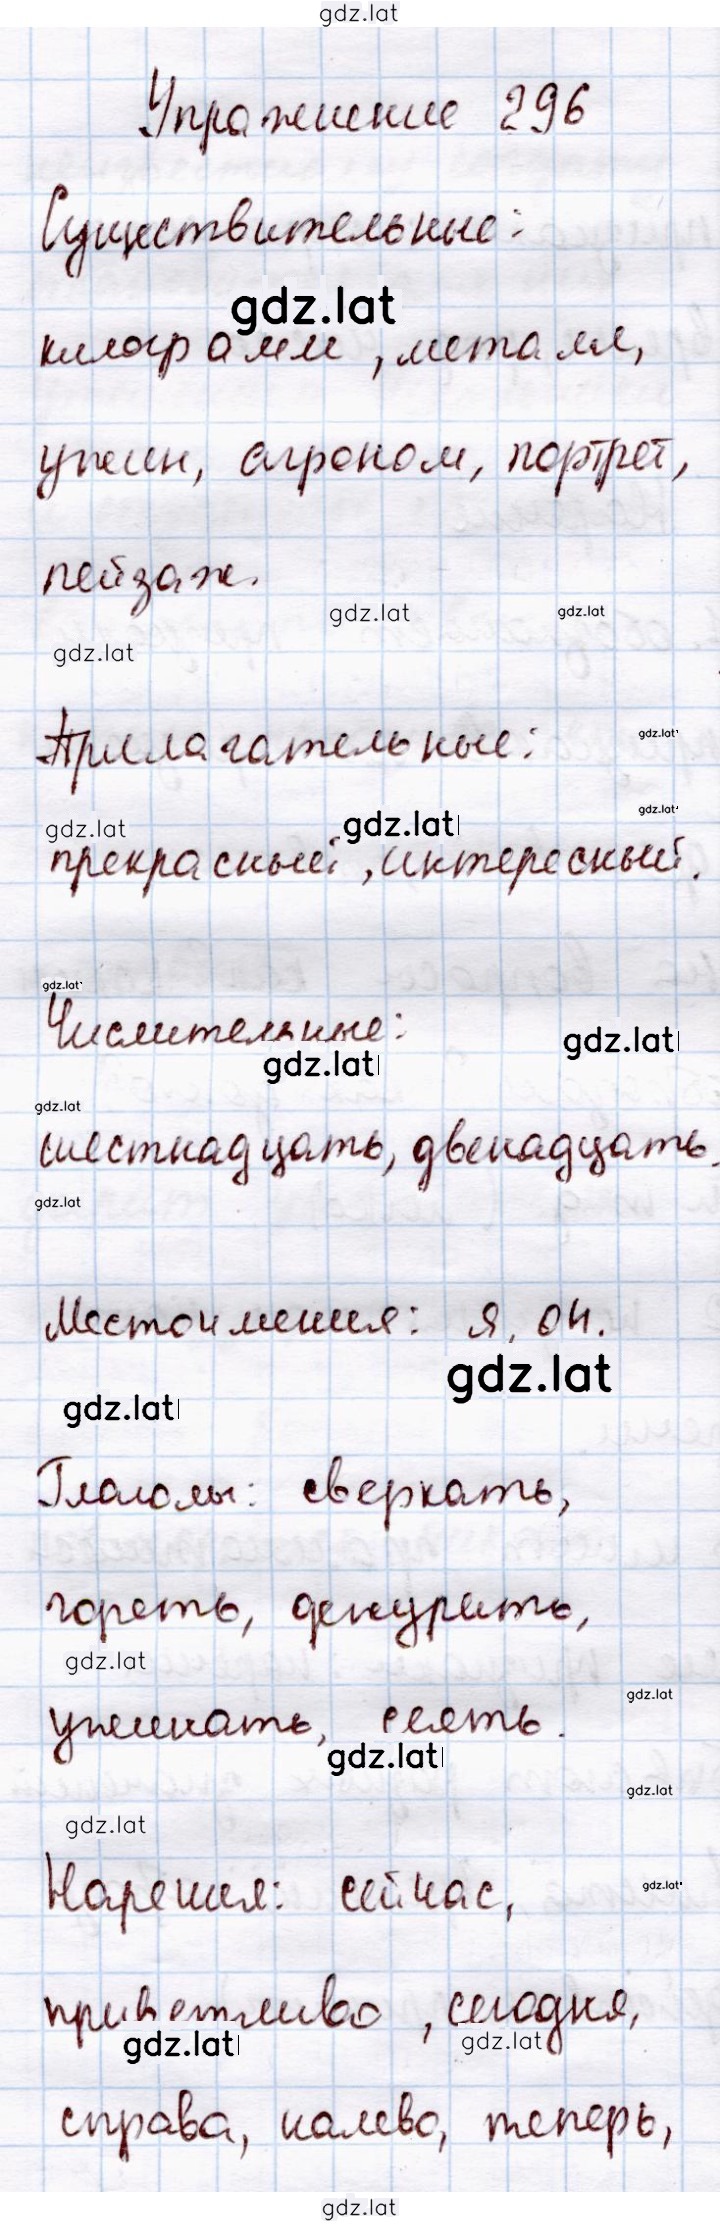 gdz.lat
Упражнение 296
Существительные:
gdz.lat
килограмм, металл,
ужин, агроном, портрет,
пейзаж.
gdz.lat gdz.lat
gdz.lat
Прилагательные:
gdz.lat
gdz.lat
gdz.lat gdz.lat
прекрасный, интересный.
gdz.lat
Числительные:
gdz.lat
gdz.lat
gdz.lat
шестнадцать, двенадцать.
gdz.lat
Местоимения: я, он.
gdz.lat
gdz.lat
Глаголы: сверкать,
гореть, дежурить,
gdz.lat
gdz.lat
ужинать, сеять.
gdz.lat
gdz.lat
gdz.lat
Наречия: сейчас,
gdz.lat
приветливо, сегодня,
gdz.lat gdz.lat
справа, налево, теперь,
gdz.lat